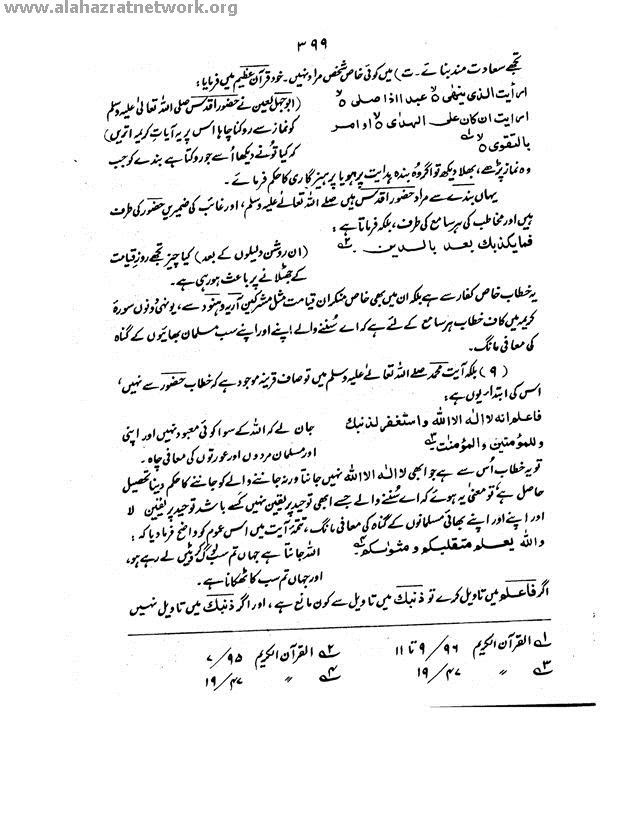 www.alahazratnetwork.org
۳۹۹
تجھے سعادت مند بنائے۔ت) میں کوئی خاص شخص مراد نہیں۔ خود قرآن عظیم میں فرمایا:
ارأیت الذی ینھٰی ہ عبدا اذا صلی ہ
(ابوجہل لعین نے حضور اقدس صلی اللہ تعالٰی علیہ وسلم
ارأیت ان کان علی الھدٰی ہ او امر
کو نماز سے روکنا چاہا اس پر یہ آیات کریمہ اتریں)
بالتقوی ہ ۱؎
کہ کیا تُو نے دیکھا اُسے جو روکتا ہے بندے کو جب
وہ نماز پڑھے، بھلا دیکھ تو اگر وُہ بندہ ہدایت پر ہو یا پرہیزگاری کا حکم فرمائے۔
یہاں بندے سے مراد حضور اقدس ہیں صلے اللہ تعالٰے علیہ وسلم، اور غائب کی ضمیریں حضور کی طرف
ہیں اور مخاطب کی ہر سامع کی طرف، بلکہ فرماتا ہے:
فما یکذبک بعد بالدین ۲؎
(ان روشن دلیلوں کے بعد) کیا چیز تجھے روزِ قیامت
کے جھٹلانے پر باعث ہو رہی ہے۔
یہ خطاب خاص کفار سے ہے بلکہ ان میں بھی خاص منکران قیامت مثل مشرکین آریہ و ہنود سے، یونہی دونوں سورۂ
کریمہ میں کاف خطاب ہر سامع کے لئے ہے کہ اے سُننے والے! اپنے اور اپنے سب مسلمان بھائیوں کے گناہ
کی معافی مانگ۔
(۹) بلکہ آیت محمد صلے اللہ تعالٰے علیہ وسلم میں تو صاف قرینہ موجود ہے کہ خطاب حضور سے نہیں،
اس کی ابتدا یوں ہے:
فاعلم انہ لا الٰہ الا اللہ و استغفر لذنبک
جان لے کہ اللہ کے سوا کوئی معبود نہیں اور اپنی
و للمؤمنین والمؤمنٰت ۳؎
اور مسلمان مردوں اور عورتوں کی معافی چاہ۔
تو یہ خطاب اُس سے ہے جو ابھی لا الٰہ الا اللہ نہیں جانتا ورنہ جاننے والے کو جاننے کا حکم دینا تحصیل
حاصل ہے، تو معنی یہ ہوئے کہ اے سُننے والے جسے ابھی توحید پر یقین نہیں کسے باشد توحید پر یقین لا
اور اپنے اور اپنے بھائی مسلمانوں کے گناہ کی معافی مانگ، تتمۂ آیت میں اس عموم کو واضح فرما دیا کہ:
واللہ یعلم متقلبکم و مثوٰبکم ۴؎
اللہ جانتا ہے جہاں تم سب لوگ کروٹیں لے رہے ہو،
اور جہاں تم سب کا ٹھکانا ہے۔
اگر فاعلم میں تاویل کرے تو ذنبک میں تاویل سے کون مانع ہے، اور اگر ذنبک میں تاویل نہیں
۱؎ القرآن الکریم ۹۶/ ۹ تا ۱۱
۲؎ القرآن الکریم ۹۵/ ۷
۳؎ " ۴۷/ ۱۹
۴؎ " ۴۷/ ۱۹